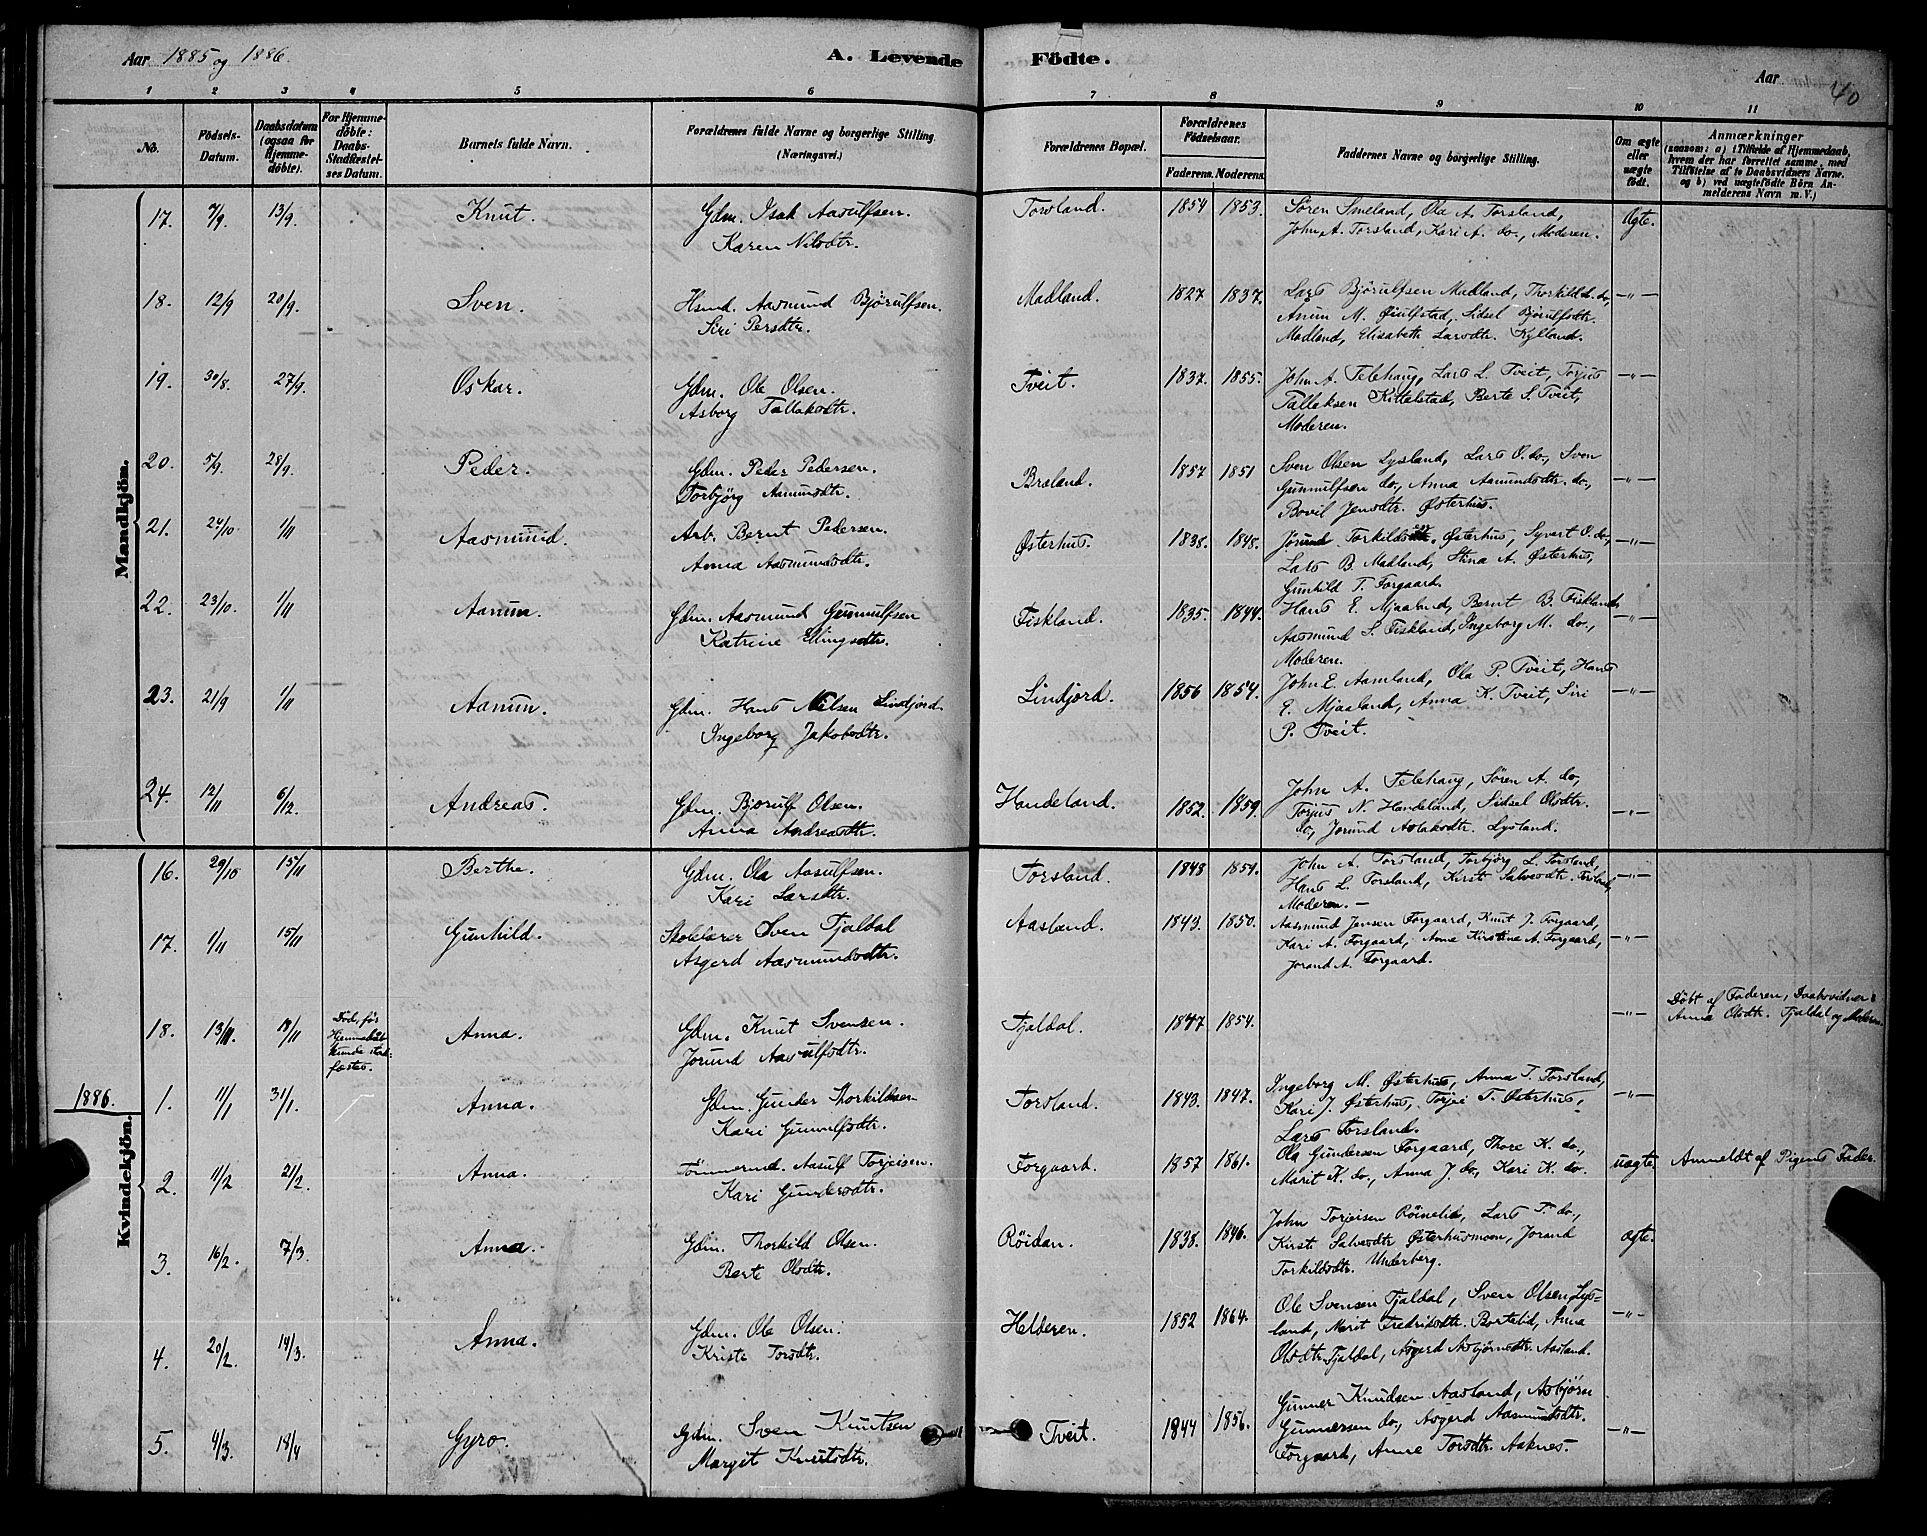 Aar 1885 og 1886.
A. Levende Födte.
Aar
40
1 2 3 4 5 6 7 8 9 10 11
No.
Födsels-Datum.
Daabsdatum (ogsaa for Hjemmedöbte).
For Hjemmedöbte: Daabs-Stadfæstelses Datum.
Barnets fulde Navn.
Forældrenes fulde Navne og borgerlige Stilling. (Næringsvei.)
Forældrenes Bopæl.
Forældrenes Födselsaar.
Faderens. Moderens.
Faddernes Navne og borgerlige Stilling.
Om ægte eller uægte födt.
Anmærkninger
(saasom: a) i Tilfælde af Hjemmedaab, hvem der har forrettet samme, med Tilföielse af to Daabsvidners Navne. og b) ved uægtefödte Börn Anmelderens Navn m. V.)
Mandkjön.
17. 7/9 13/9 Knut. Gdm. Isak Aasulfsen. Torsland. 1854 1853. Søren Smeland, Ola A. Torsland, Ægte.
Karen Nilsdtr. John A. Torsland, Kari A. do., Moderen.
18. 12/9 20/9. Sven. Hsmd. Aasmund Bjørulfsen. Madland. 1827 1837. Lars Bjørulfsen Madland, Thorkild do, —„—
Siri Persdtr. Anun M. Øiulfstad, Sidsel Bjørulfsdtr.
Madland, Elisabeth Larsdtr. Kylland.
19. 30/8. 27/9. Oskar. Gdm. Ole Olsen. Tveit. 1837. 1855. John A. Telehaug, Lars L. Tveit, Torjus —„—
Asborg Tallaksdtr. Tallaksen Kittelstad, Berte S. Tveit,
Moderen.
20. 5/9. 28/9. Peder. Gdm. Peder Pedersen. Braland. 1857 1851 Sven Olsen Lysland, Lars O. do., Sven —„—
Torbjørg Aamundsdtr. Gunnulfsen do, Anna Aamundsdtr. do.,
Bovil Jensdtr. Østerhus.
21. 24/10. 1/11 Aasmund. Arb. Bernt Pedersen. Østerhus. 1838. 1848. Torkilds Østerhus, Syvert O. do, —„—
Anna Aasmundsdtr. Lars B. Madland, Stina A. Østerhus,
Gunhild T. Forgaard.
22. 23/10. 1/11 Aanun. Gdm. Aasmund Gunnulfsen Fiskland. 1835. 1844. Hans E. Mjaaland, Bernt B. Fiskland, —„—
Katrine Ellingsdtr. Aasmund S. Fiskland, Ingeborg M. do.,
Moderen.
23. 21/9 1/11 Aanun. Gdm. Hans Nilsen Lindjord. Lindjord. 1856 1854. John E. Aamland, Ola P. Tveit, Hans —„—
Ingeborg Jakobsdtr. E. Mjaaland, Anna K. Tveit, Siri
P. Tveit.
24. 12/11 6/12. Andreas. Gdm. Bjørulf Olsen. Handeland. 1852. 1859. John A. Telehaug, Søren A. do, —„—
Anna Andreasdtr. Torjus N. Handeland, Sidsel Olsdtr.
do, Jorund Aslaksdtr. Lysland.
Kvindekjön.
16. 29/10 15/11 Berthe. Gdm. Ola Aasulfsen. Torsland. 1848 1859. John A. Torsland, Torbjørg L. Torsland, —„—
Kari Larsdtr. Hans L. Torsland, Kirsti Salvesdtr. Torsland,
Moderen. —
17. 1/11 15/11 Gunhild. Skolelærer Sven Tjaldal Aasland. 1843. 1850. Aasmund Jensen Forgaard, Knut J. Forgaard, —„—
Asgerd Aasmundsdtr. Kari A. Forgaard, Anne Kirstine A. Forgaard,
Jorand A. Forgaard.
18. 13/11. 18/11 Død, før Hjemmedaab kunde stadfæstes. Anna. Gdm. Knut Svensen. Tjaldal. 1847 1854. —„— Døbt af Faderen, Daabsvidner:
Jorund Aasulfsdtr. Anna Olsdtr. Tjaldal og Moderen.
1886.
1. 11/1 31/1. Anna. Gdm. Gunder Thorkildsen Torsland. 1843. 1847. Ingeborg M. Østerhus, Anna T. Torsland, —„—
Kari Gunnulfsdtr. Kari J. Østerhus, Torjei T. Østerhus,
Lars Torsland.
2. 11/2 21/2. Anna. Tømmermd. Aasulf Torjeisen. Forgaard. 1857 1861. Ola Gundersen Forgaard, Thore K. do., uægte. Anmeldt af Pigens Fader.
Kari Gundersdtr. Marit K. do., Anna J. do, Kari K. do.
3. 16/2. 7/3. Anna. Gdm. Thorkild Olsen. Röidan. 1838. 1846. John Torjeisen Röinelid, Lars T. do., ægte.
Berte Olsdtr. Kirsti Salvesdtr Østerhusmoen, Jorand
Torkildsdtr. Underberg.
4. 20/2. 14/3. Anna. Gdm. Ole Olsen. Helderen. 1852 1864. Ole Svensen Tjaldal, Sven Olsen Lys- —„—
Kristi Torsdtr. land, Marit Fredriksdtr. Bortelid, Anna
Olsdtr. Tjaldal, Asgerd Asbjørnsdtr. Aasland.
5. 4/3. 14/4 Gyro. Gdm. Sven Knutsen Tveit. 1844 1856. Gunner Knudsen Aasland, Asbjørn —„—
Margit Knutsdtr. Gunnersen do., Asgerd Aasmundsdtr.
Forgaard, Anne Torsdtr. Aaknes.